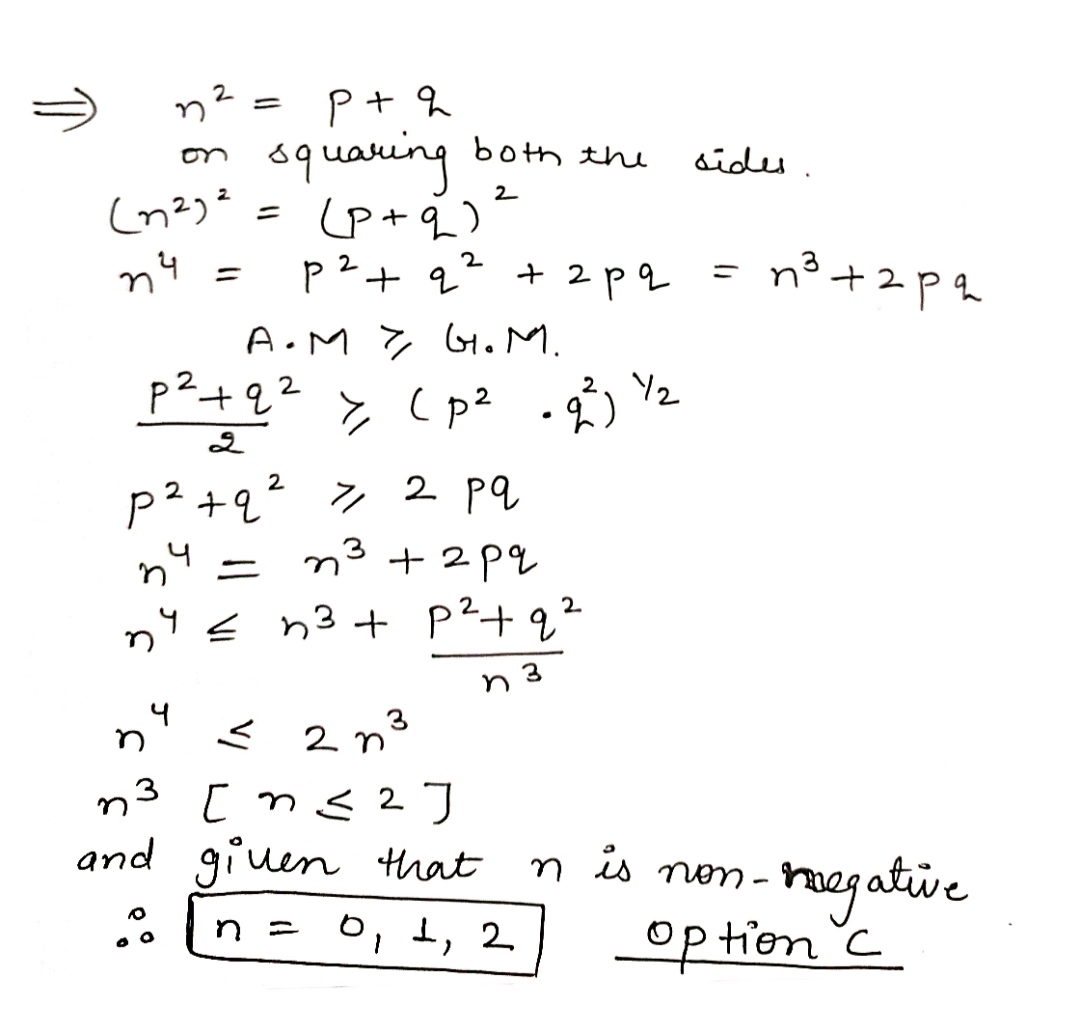 ⇒ n² = p + q
on squaring both the sides.
(n²)² = (p + q)²
n⁴ = p² + q² + 2pq = n³ + 2pq
A.M ≥ G.M.
(p² + q²)/2 ≥ (p² · q²)^1/2
p² + q² ≥ 2 pq
n⁴ = n³ + 2pq
n⁴ ≤ n³ + (p² + q²)/n³
n⁴ ≤ 2n³
n³ [n ≤ 2]
and given that n is non-negative
∴ n = 0, 1, 2 option C